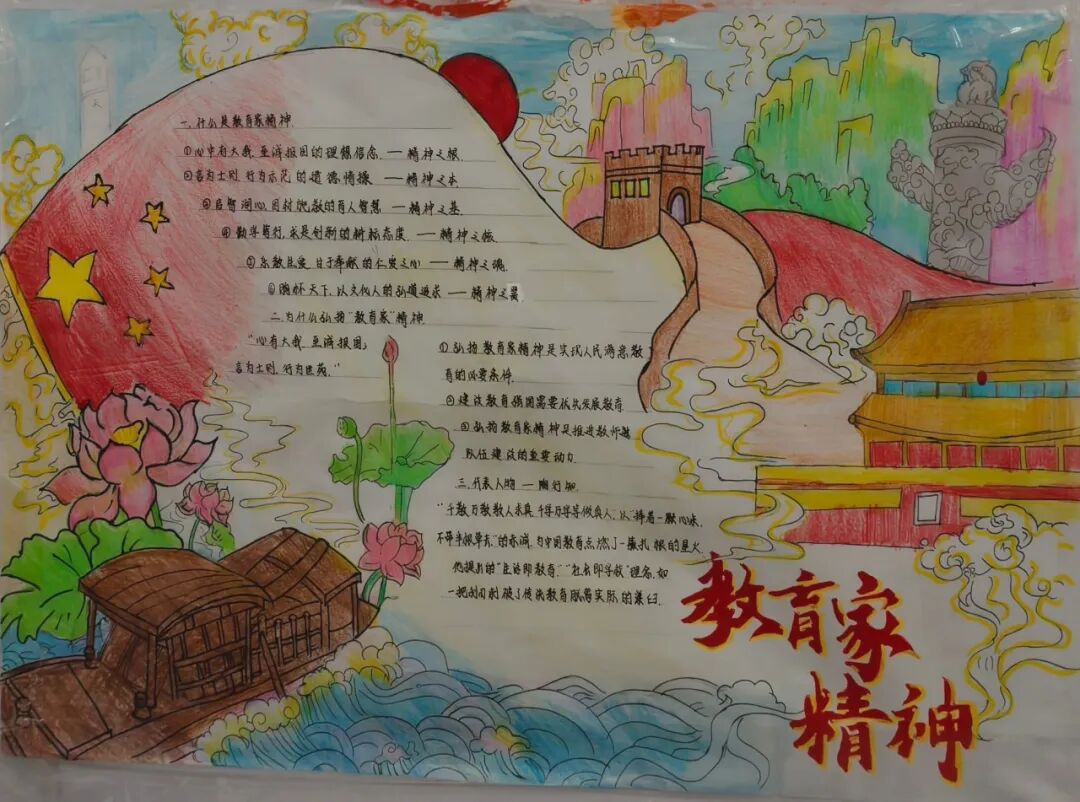 一.什么是教育家精神.
①心中有大我、至诚报国的理想信念. — 精神之根.
②言为士则.行为示范的道德情操 — 精神之本
③启智润心.因材施教的育人智慧 — 精神之基.
④勤学笃行,求是创新的躬耕态度. — 精神之核.
⑤乐教爱生、甘于奉献的仁爱之心 — 精神之魂.
⑥胸怀天下,以文化人的弘道追求 — 精神之
二.为什么弘扬"教育家"精神.
"心有大我.至诚报国;
言为士则.行为世范."
①弘扬教育家精神是实现人民满意教
育的必要条件.
②建设教育强国需要优先发展教育
③弘扬教育家精神是推进教师
队伍建设的重要动力
三.代表人物 — 陶行知.
"千教万教教人求真 千学万学学做真人,以"捧着一颗心来.
不带半根草去"的赤诚,为中国教育点燃了一簇扎根的星火.
他提出的"生活即教育.""社会即学校"理念.如
一把 刺破了传统教育脱离实际的
教育家
精神